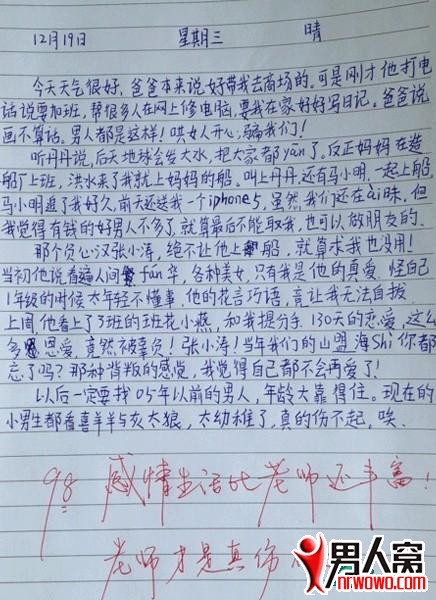 12月19日 星期三 晴
今天天气很好，爸爸本来说好带我去商场的。可是刚才他打电
话说要加班，帮很多人在网上修电脑，要我在家好好写日记。爸爸说
画不算话。男人都是这样！哄女人开心，骗我们！
听丹丹说，后天地球会发大水，把大家都yān了。反正妈妈在造
船厂上班，洪水来了我就上妈妈的船。叫上丹丹还有马小明，一起上船，
马小明追了我好久，前天还送我一个iphone5，虽然我们还在ài昧，但
我觉得有钱的好男人不多了，就算最后不能取我，也可以做朋友的。
那个负心汉张小涛，绝不让他上船，就算求我也没用！
当初他说看遍人间fán华，各种美女，只有我是他的真爱。怪自己
1年级的时候太年轻不懂事，他的花言巧语，竟让我无法自拔。
上周，他看上了3班的班花小燕，和我提分手。130天的恋爱，这么
多恩爱，竟然被辜负！张小涛！当年我们的山盟海Shi你都
忘了吗？那种背叛的感觉，我觉得自己都不会再爱了！
以后一定要找05年以前的男人，年龄大靠得住。现在的
小男生都看喜羊羊与灰太狼，太幼稚了，真的伤不起，唉
98 感情生活比老师还丰富！
老师才是真伤
男人窝
nrwowo.com